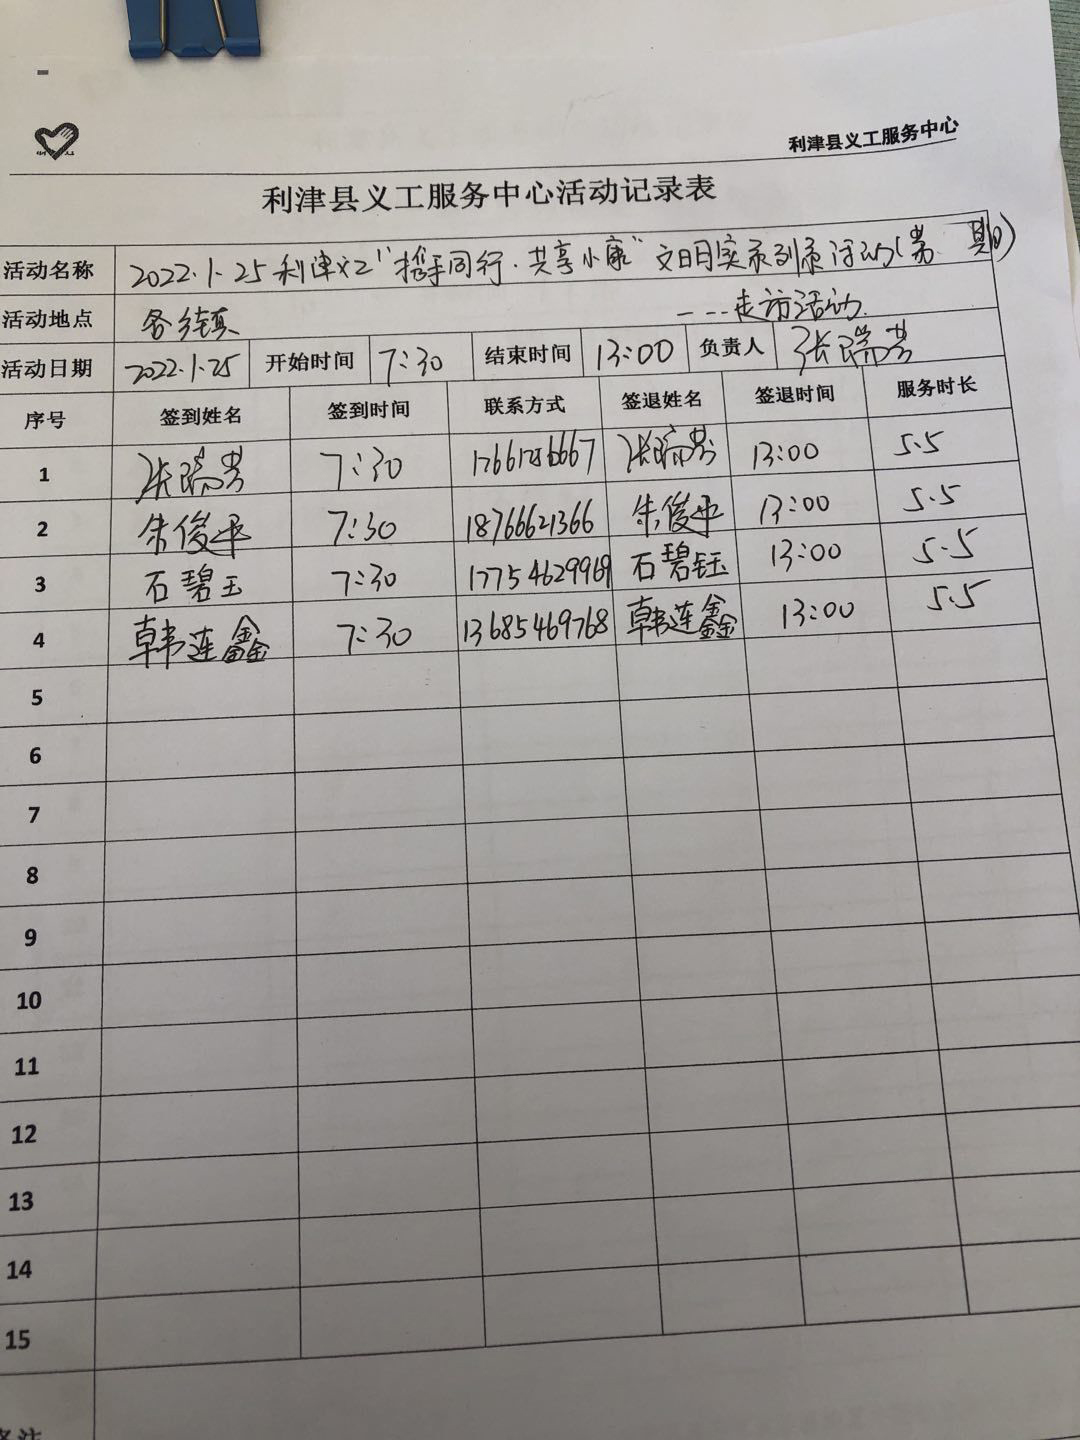 利津县义工服务中心
利津县义工服务中心活动记录表
活动名称 2022.1.25利津义工"携手同行.共享小康"文明实系列系活动(第 期)
活动地点 各乡镇 ----走访活动.
活动日期 2022.1.25 开始时间 7:30 结束时间 13:00 负责人 张瑞芳
序号 签到姓名 签到时间 联系方式 签退姓名 签退时间 服务时长
1 张瑞芳 7:30 张瑞芳 13:00 5.5
2 朱俊平 7:30 18766621366 朱俊平 13:00 5.5
3 石碧玉 7:30 17754629969 石碧钰 13:00 5.5
4 韩连鑫 7:30 13685469768 韩连鑫 13:00 5.5
5
6
7
8
9
10
11
12
13
14
15
备注